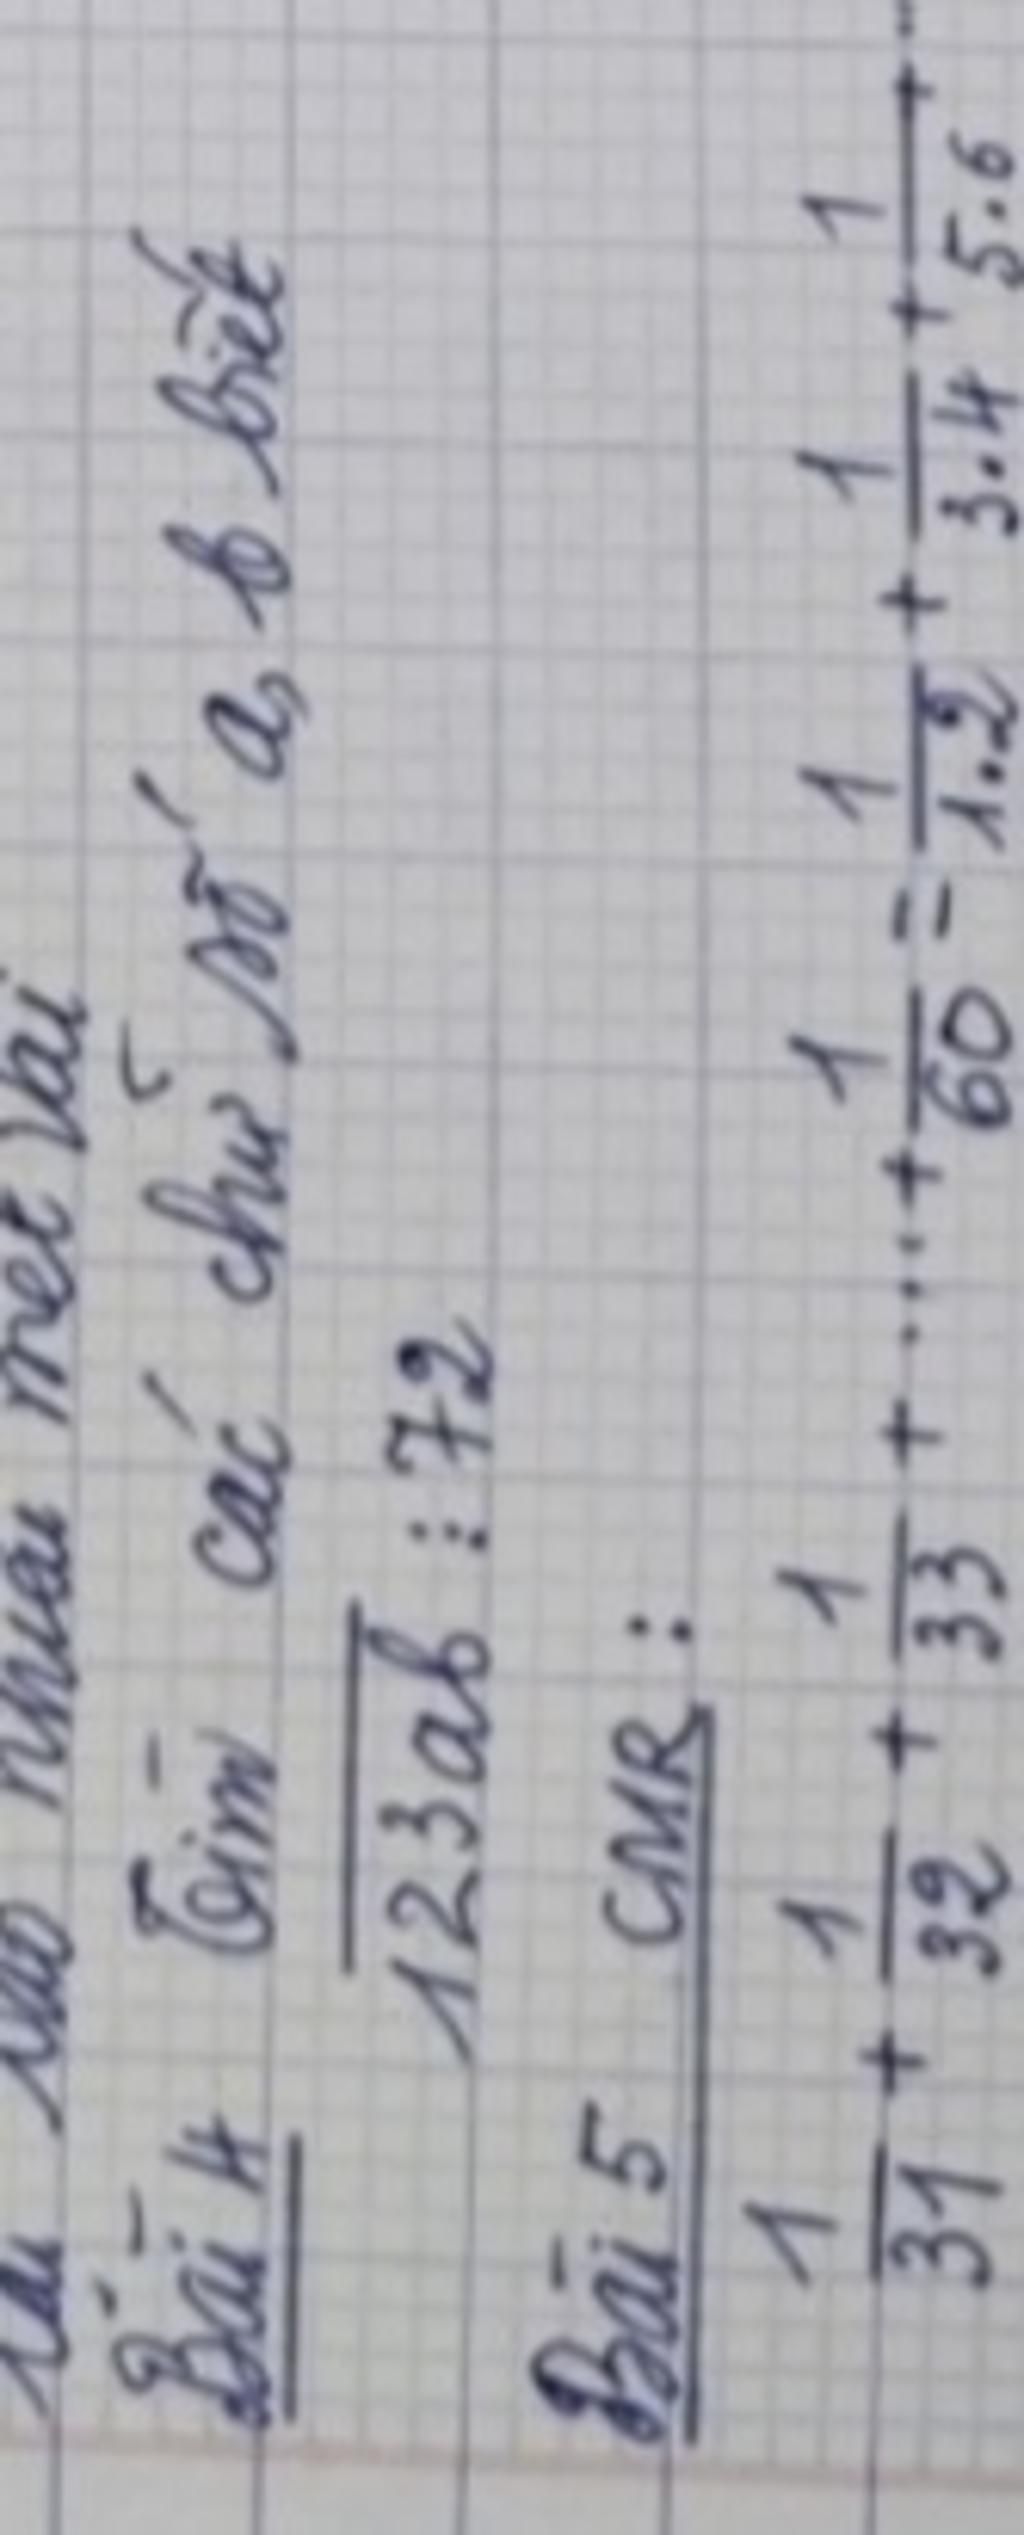 nhiêu mét vải
Bài 4 Tìm các chữ số a, b biết
123ab ⋮ 72
Bài 5 CMR :
1/31 + 1/32 + 1/33 + ... + 1/60 = 1/1.2 + 1/3.4 + 1/5.6 + ...